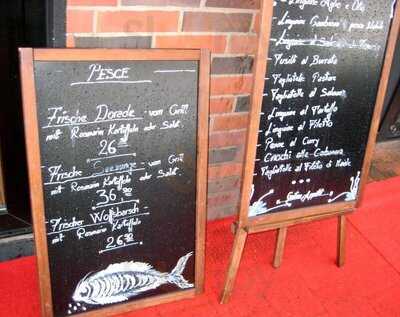 PESCE
Frische Dorade vom Grill
mit Rosmarin Kartoffeln oder Salat.
26
Frische Seezunge vom Grill
mit Rosmarin Kartoffeln oder Salat.
36.90
Frischer Wolfsbarsch
mit Rosmarin Kartoffeln
26.90
Linguine Aglio e Olio
Linguine
Linguine
Fusilli al
Tagliatelle
Tagliatelle al Salmone
Linguine al
Linguine al Filetto
Penne al Curry
Gnocchi alla
Tagliatelle al Filetto di